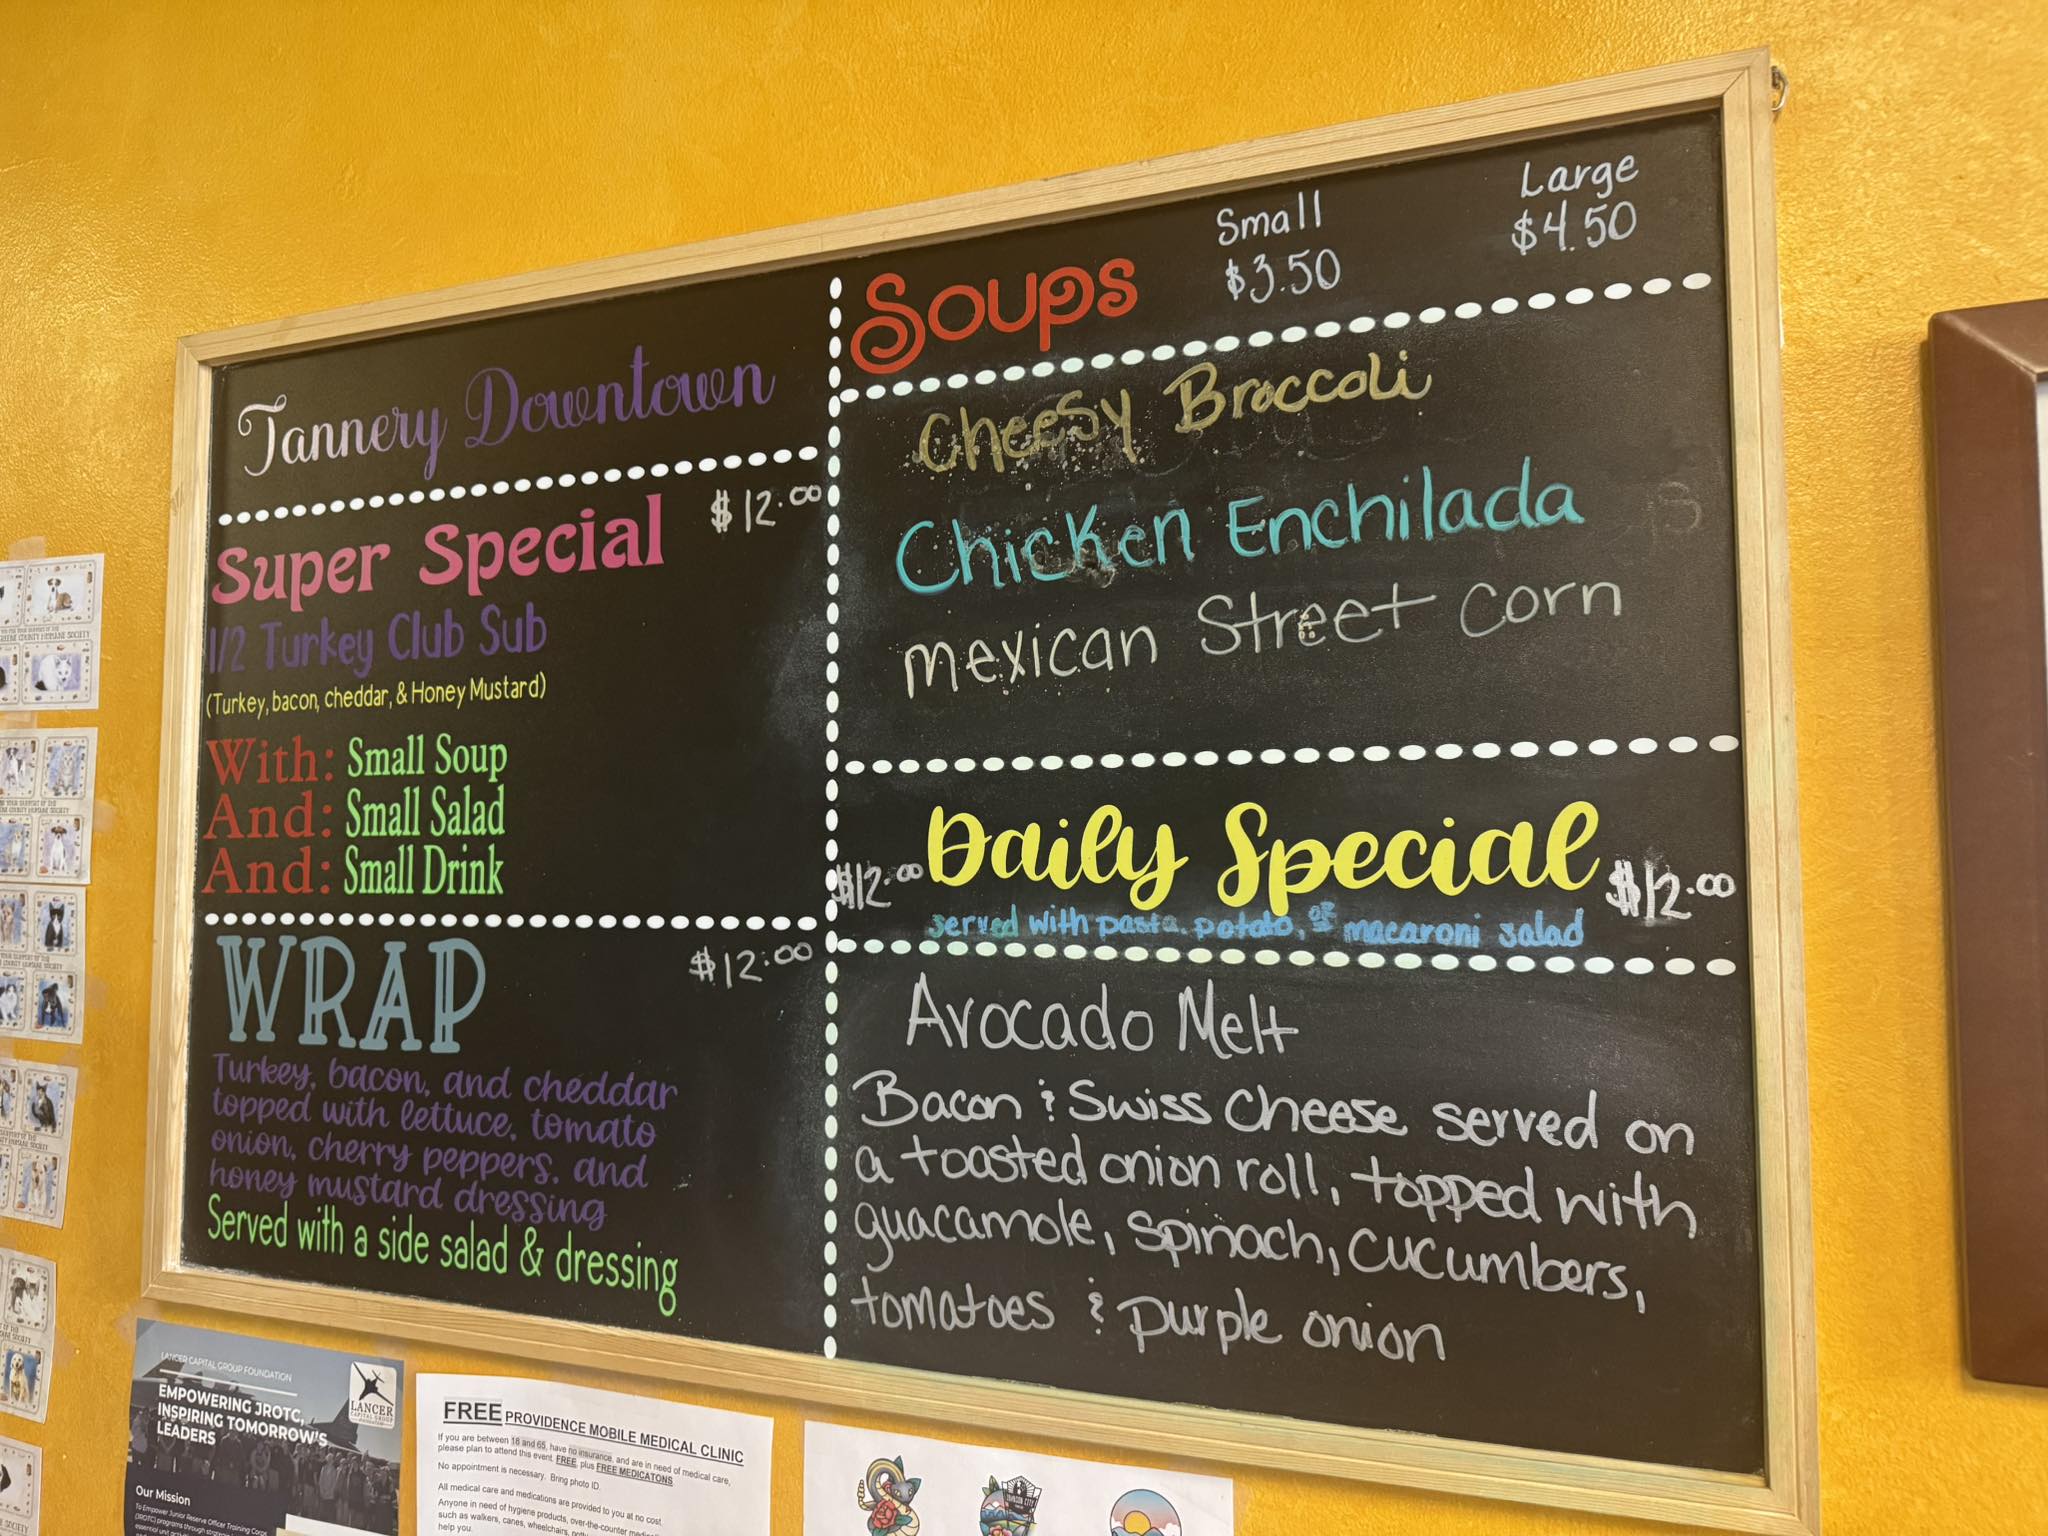 Tannery Downtown
Super Special $12.00
1/2 Turkey Club Sub
(Turkey, bacon, cheddar, & Honey Mustard)
With: Small Soup
And: Small Salad
And: Small Drink
WRAP $12.00
Turkey, bacon, and cheddar
topped with lettuce, tomato
onion, cherry peppers, and
honey mustard dressing
Served with a side salad & dressing
Soups
Small
$3.50
Large
$4.50
Cheesy Broccoli
Chicken Enchilada
mexican Street corn
$12.00 Daily Special $12.00
served with pasta, potato, or macaroni salad
Avocado Melt
Bacon & Swiss Cheese served on
a toasted onion roll, topped with
guacamole, spinach, cucumbers,
tomatoes & purple onion
LANCER CAPITAL GROUP FOUNDATION
EMPOWERING JROTC,
INSPIRING TOMORROW'S
LEADERS
LANCER
CAPITAL GROUP
Our Mission
To Empower Junior Reserve Officer Training Corps
(JROTC) programs through
FREE PROVIDENCE MOBILE MEDICAL CLINIC
If you are between 18 and 65, have no insurance, and are in need of medical care,
please plan to attend this event, FREE, plus FREE MEDICATONS
No appointment is necessary. Bring photo ID.
All medical care and medications are provided to you at no cost.
Anyone in need of hygiene products, over-the-counter
such as walkers, canes, wheelchairs,
help you.
JOHNSON CITY